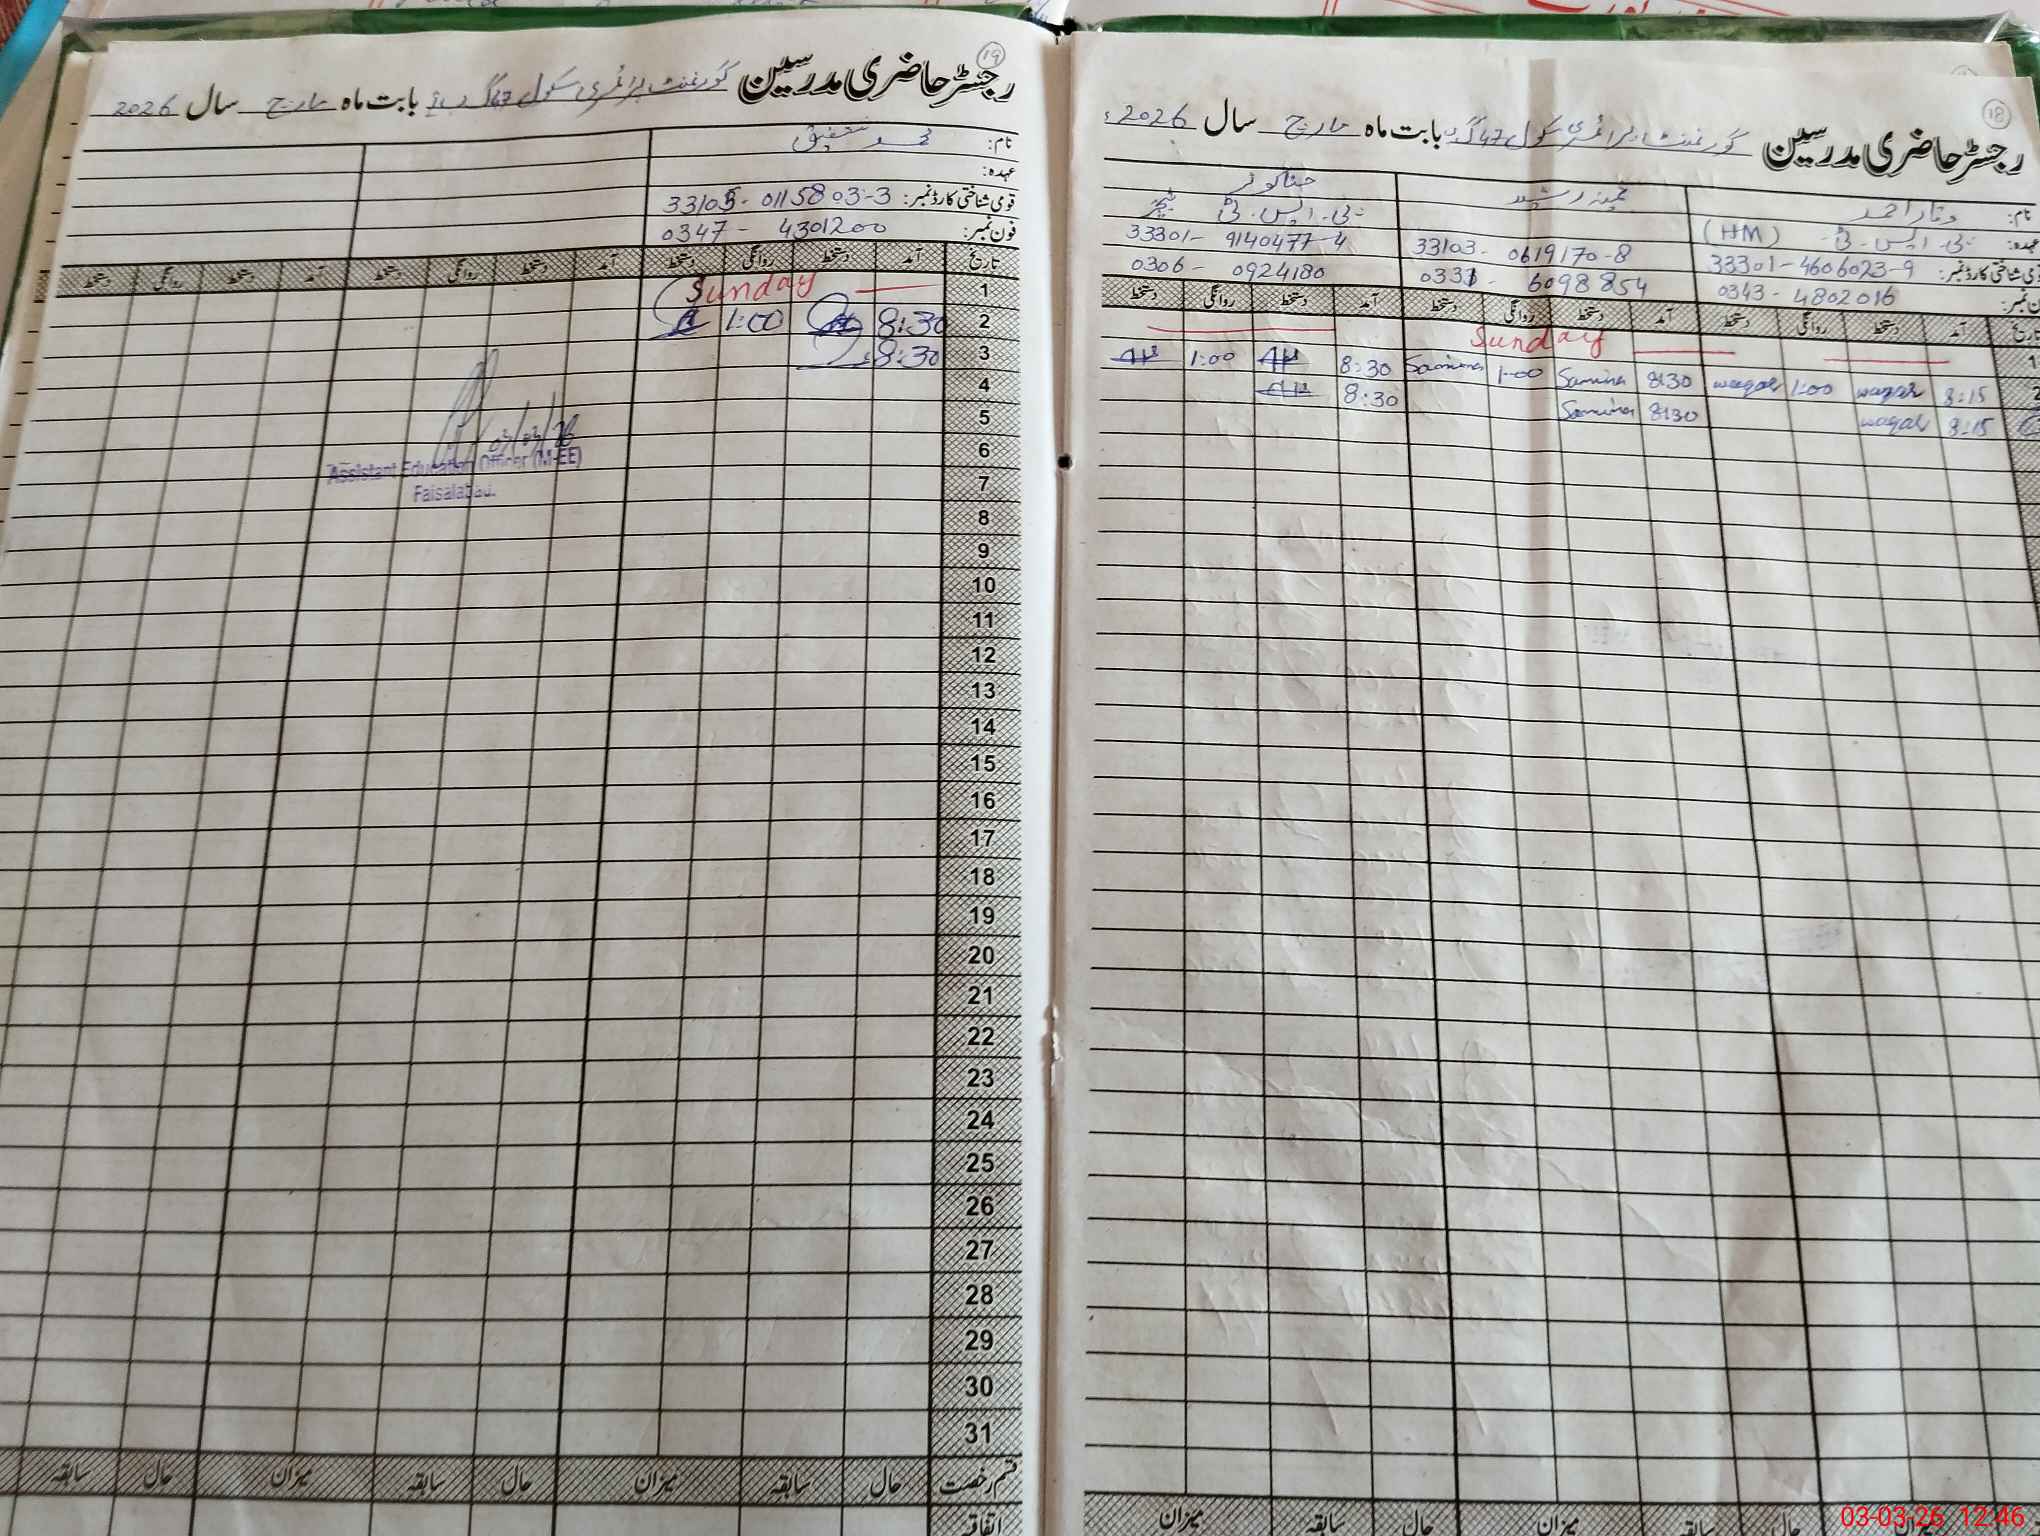 رجسٹر حاضری مدرسین گورنمنٹ پرائمری سکول 47 گ ب بابت ماہ مارچ سال 2026ء
18
نام: وقار احمد
ثمینہ رشید
عہدہ: پی۔ایس۔ٹی۔ (HM)
پی۔ایس۔ٹی ٹیچر
قومی شناختی کارڈ نمبر: 33301-4606023-9
33103-0619170-8
33301-9140477-4
فون نمبر: 0343-4802016
0331-6098854
0306-0924180
تاریخ آمد دستخط روانگی دستخط آمد دستخط روانگی دستخط آمد دستخط روانگی دستخط
1 Sunday
2 8:15 waqar 1:00 waqar 8:30 Samina 1:00 Samina 8:30 1:00
8:15 waqar 8:30 Samina 8:30
میزان سابقہ حال میزان سابقہ حال میزان
رجسٹر حاضری مدرسین گورنمنٹ پرائمری سکول 47 گ ب بابت ماہ مارچ سال 2026
19
نام: محمد شفیق
عہدہ:
قومی شناختی کارڈ نمبر: 33105-0115803-3
فون نمبر: 0347-4301200
تاریخ آمد دستخط روانگی دستخط آمد دستخط روانگی دستخط آمد دستخط روانگی دستخط
1 Sunday
2 8:30 1:00
3 8:30
4
5
6
7
8
9
10
11
12
13
14
15
16
17
18
19
20
21
22
23
24
25
26
27
28
29
30
31
قسم رخصت حال سابقہ میزان حال سابقہ میزان حال سابقہ
اتفاقیہ
03/03/26
Assistant Education Officer (M-EE)
Faisalabad.
03-03-26 12:46